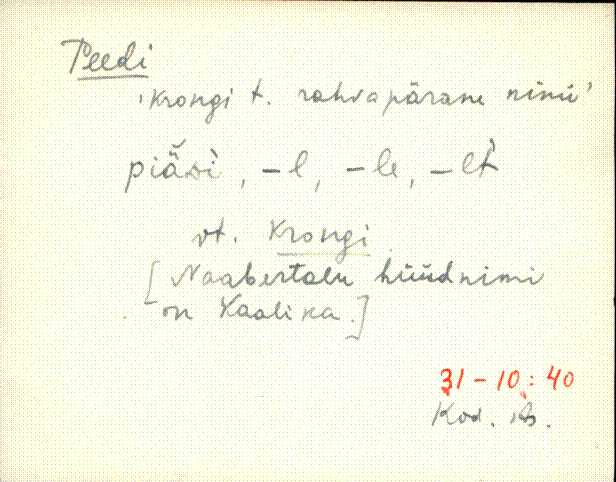 Peedi
'Krongi t. rahvapärane nimi'
, -l, -le, -lt
vt. Krongi
[Naabertalu hüüdnimi
on Kaalika.]
31-10:40
Kod.